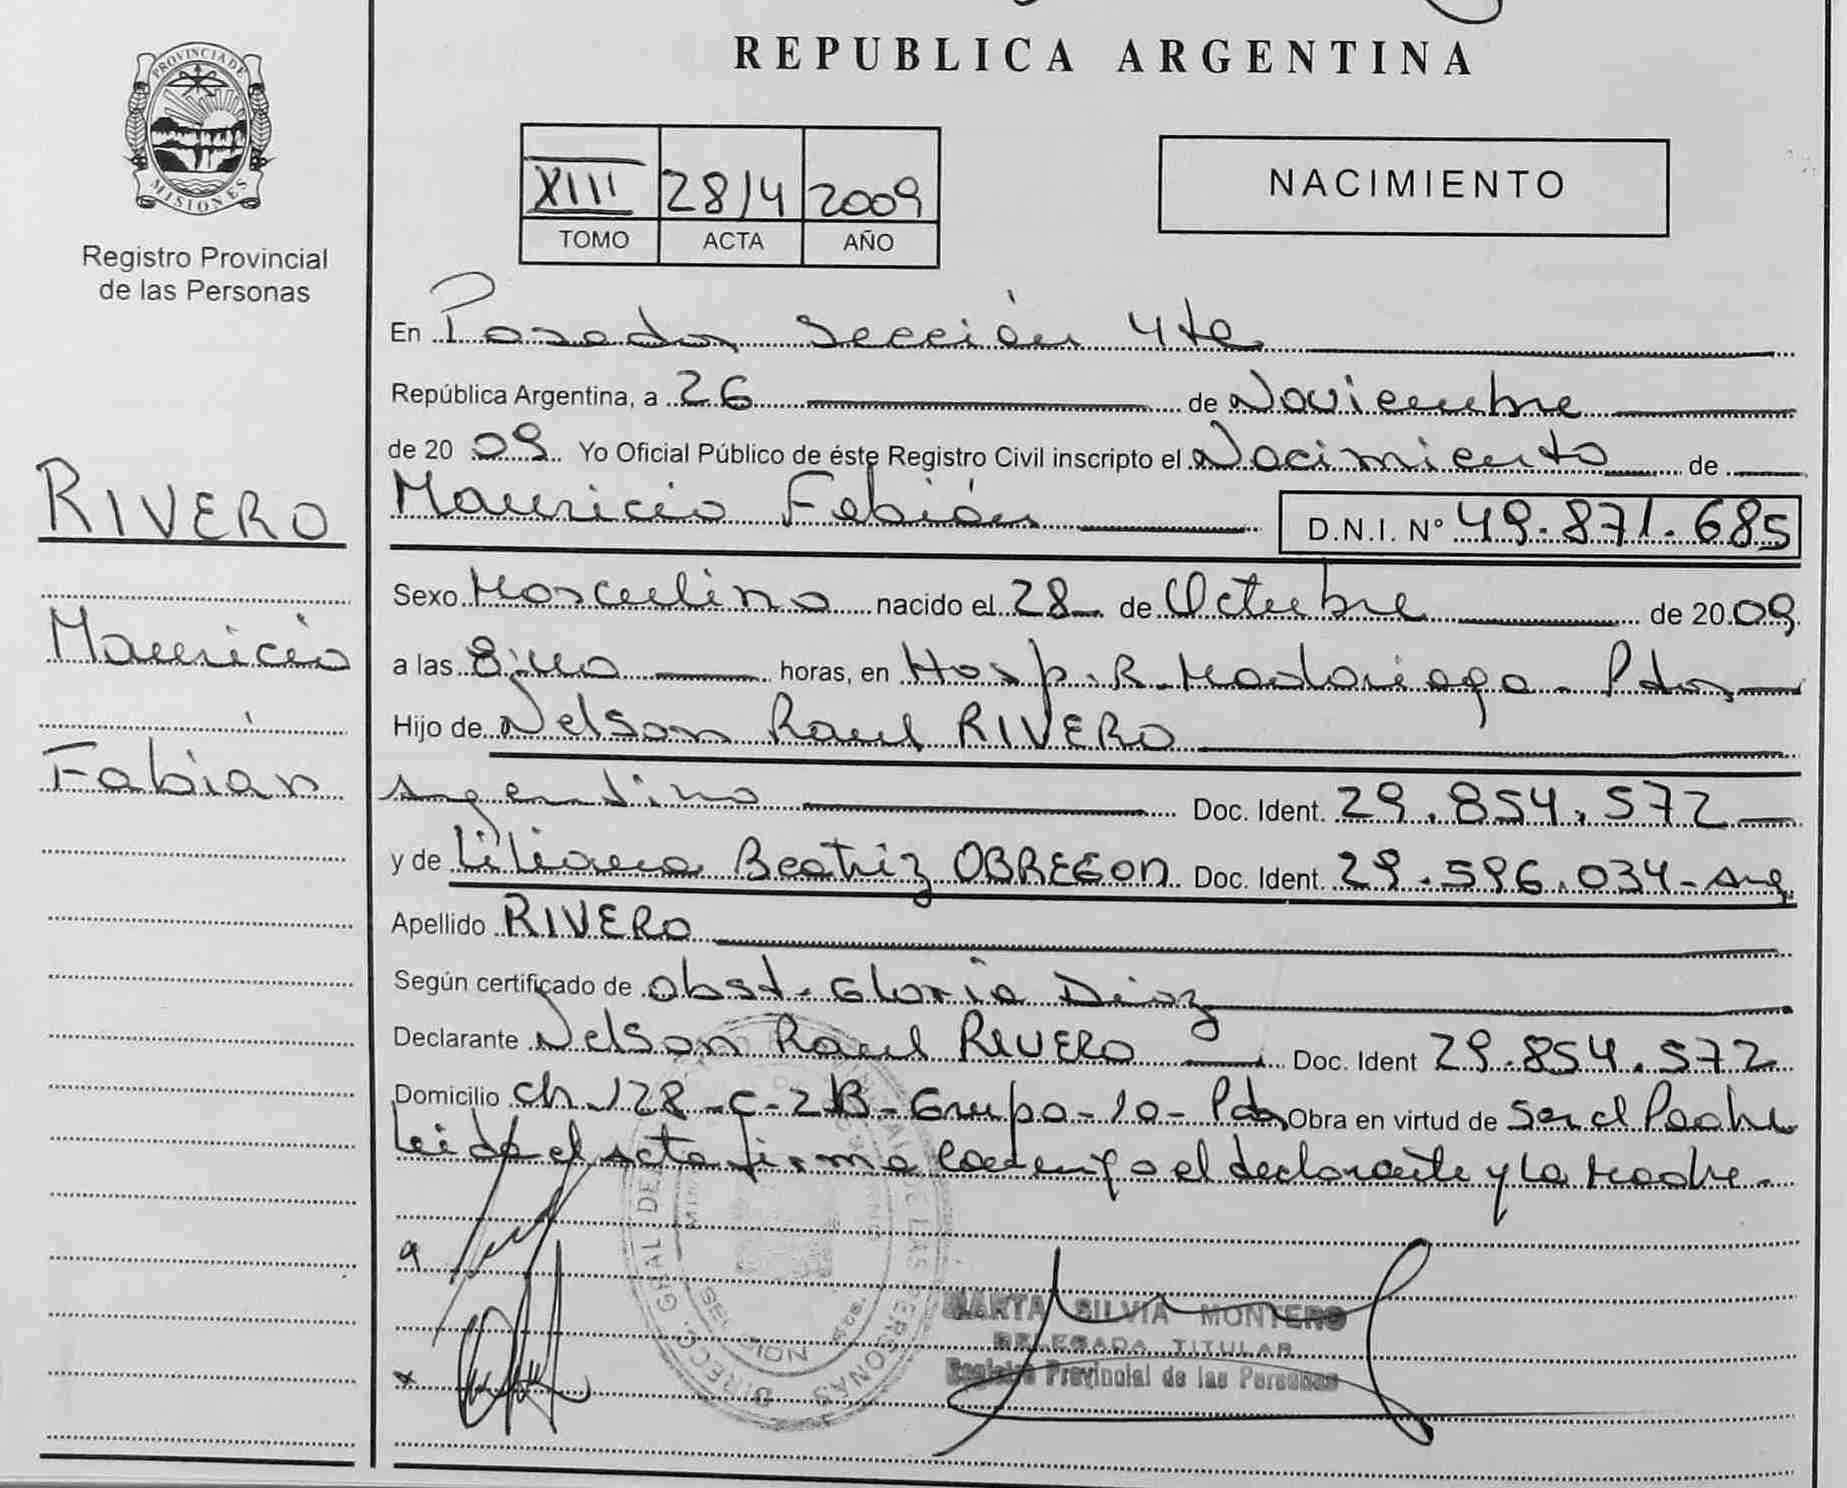 REPUBLICA ARGENTINA
PROVINCIA DE MISIONES
Registro Provincial
de las Personas
XIII 2814 2009
TOMO ACTA AÑO
NACIMIENTO
En Posadas Sección 4ta
República Argentina, a 26 de Noviembre
de 20 09 Yo Oficial Público de éste Registro Civil inscripto el Nacimiento de
Mauricio Fabián D.N.I. Nº 49.871.685
RIVERO
Mauricio
Fabián
Sexo Masculino nacido el 28 de Octubre de 20 09
a las horas, en Hosp. R. Madariaga - Pdas
Hijo de Nelson Raul RIVERO
Argentino Doc. Ident. 29.854.572
y de Liliana Beatriz OBREGON Doc. Ident. 29.596.034 - Arg.
Apellido RIVERO
Según certificado de Obst. Gloria Diaz
Declarante Nelson Raul RIVERO Doc. Ident 29.854.572
Domicilio Ch. 128 - C - 2 B - Grupo - 10 - Pdas Obra en virtud de ser el Padre
Leida el acta firma conmigo el declarante y la Madre.
MARTA SILVIA MONTERO
DELEGADA TITULAR
Registro Provincial de las Personas